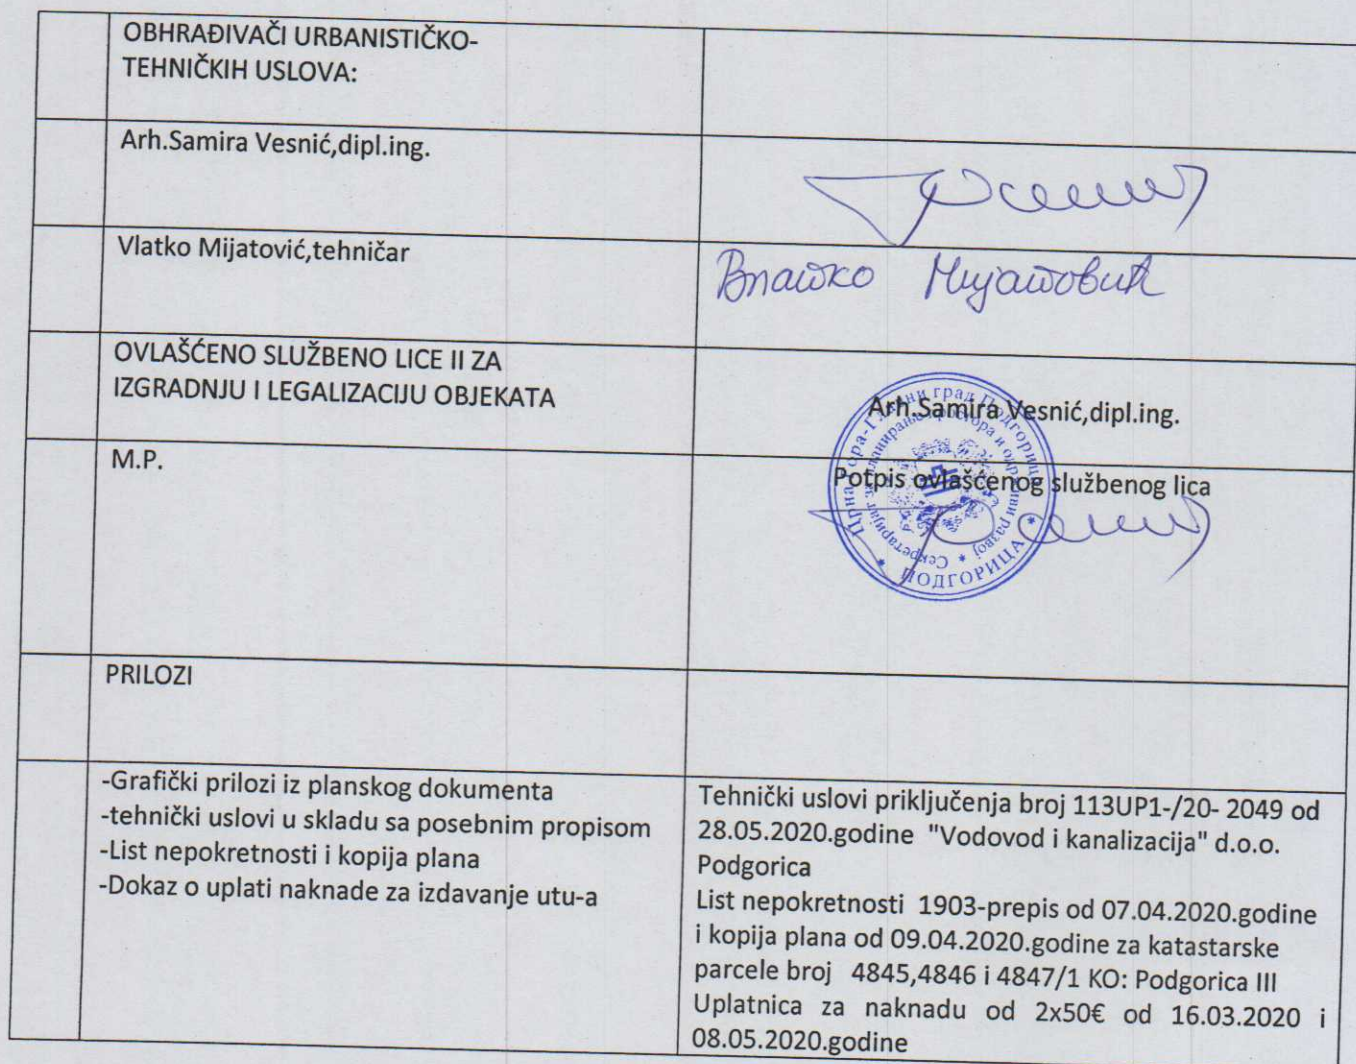 OBHRAĐIVAČI URBANISTIČKO-
TEHNIČKIH USLOVA:
Arh.Samira Vesnić,dipl.ing.
Vlatko Mijatović,tehničar
Влатко Мијатовић
OVLAŠĆENO SLUŽBENO LICE II ZA
IZGRADNJU I LEGALIZACIJU OBJEKATA
Arh.Samira Vesnić,dipl.ing.
M.P.
Potpis ovlašćenog službenog lica
Црна Гора-Главни град Подгорица
Секретаријат за планирање простора и одрживи развој
ПОДГОРИЦА
PRILOZI
-Grafički prilozi iz planskog dokumenta
-tehnički uslovi u skladu sa posebnim propisom
-List nepokretnosti i kopija plana
-Dokaz o uplati naknade za izdavanje utu-a
Tehnički uslovi priključenja broj 113UP1-/20- 2049 od
28.05.2020.godine "Vodovod i kanalizacija" d.o.o.
Podgorica
List nepokretnosti 1903-prepis od 07.04.2020.godine
i kopija plana od 09.04.2020.godine za katastarske
parcele broj 4845,4846 i 4847/1 KO: Podgorica III
Uplatnica za naknadu od 2x50€ od 16.03.2020 i
08.05.2020.godine